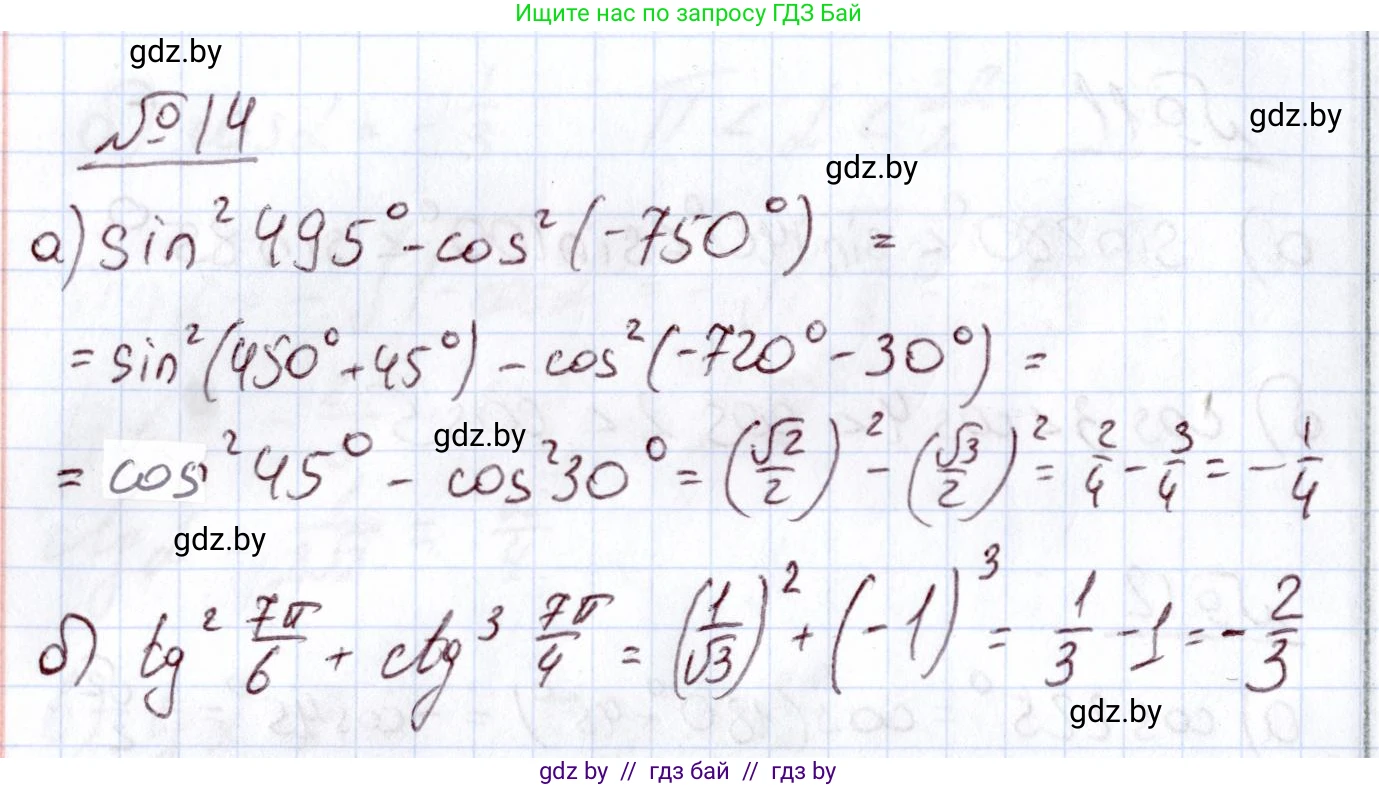 Ищите нас по запросу ГДЗ Бай
gdz.by
№ 14
gdz.by
gdz.by
а) sin² 495° - cos² (-750°) =
= sin² (450° + 45°) - cos² (-720° - 30°) =
gdz.by
= cos² 45° - cos² 30° = (√2/2)² - (√3/2)² = 2/4 - 3/4 = - 1/4
gdz.by
б) tg² 7π/6 + ctg³ 7π/4 = (1/√3)² + (-1)³ = 1/3 - 1 = - 2/3
gdz.by
gdz by // гдз бай // гдз by